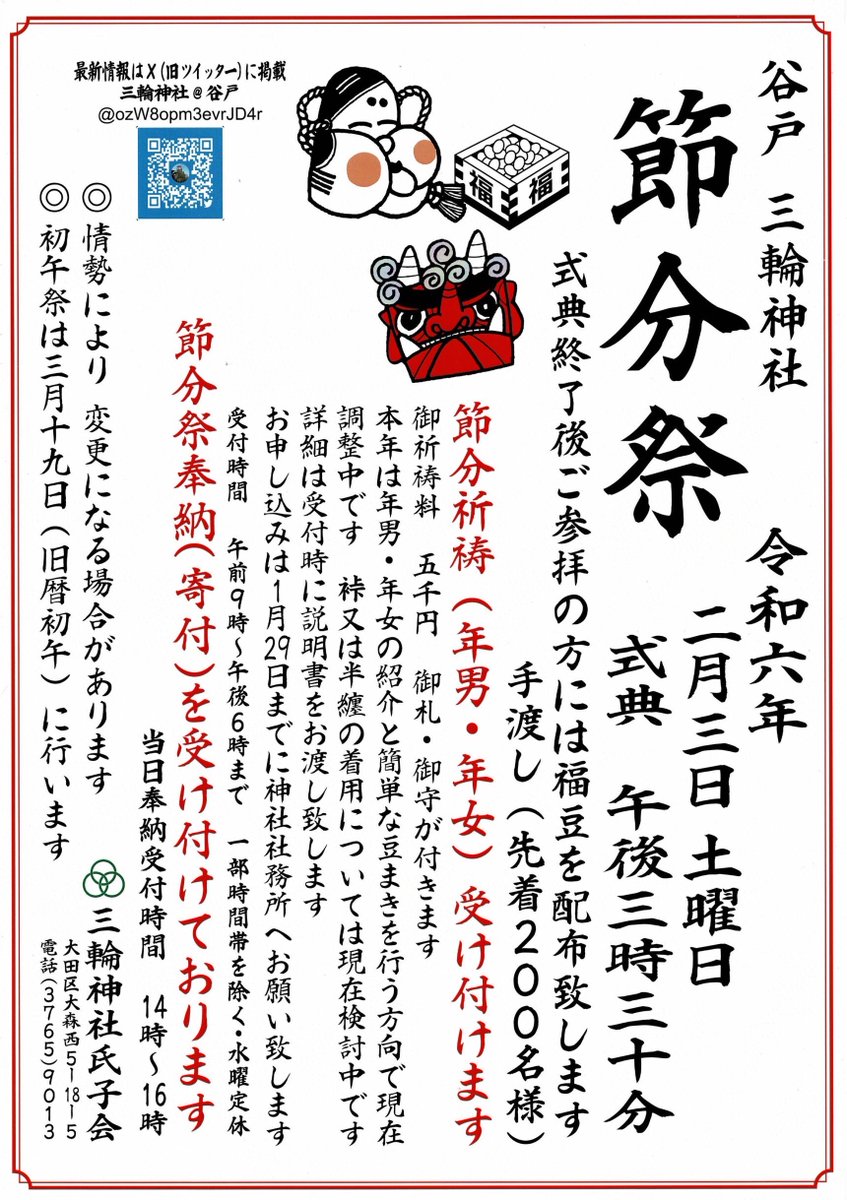 谷戸 三輪神社
節分祭
令和六年
二月三日 土曜日
式典 午後三時三十分
式典終了後ご参拝の方には福豆を配布致します
手渡し(先着200名様)
節分祈祷(年男・年女)受け付けます
御祈祷料 五千円 御札・御守が付きます
本年は年男・年女の紹介と簡単な豆まきを行う方向で現在
調整中です 裃又は半纏の着用については現在検討中です
詳細は受付時に説明書をお渡し致します
お申し込みは1月29日までに神社社務所へお願い致します
受付時間 午前9時~午後6時まで 一部時間帯を除く・水曜定休
節分祭奉納(寄付)を受け付けております
当日奉納受付時間 14時~16時
◎ 情勢により 変更になる場合があります
◎ 初午祭は三月十九日(旧暦初午)に行います
三輪神社氏子会
大田区大森西5-18-5
電話(3765)9013
最新情報はX(旧ツイッター)に掲載
三輪神社@谷戸
@ozW8opm3evrJD4r
福
福